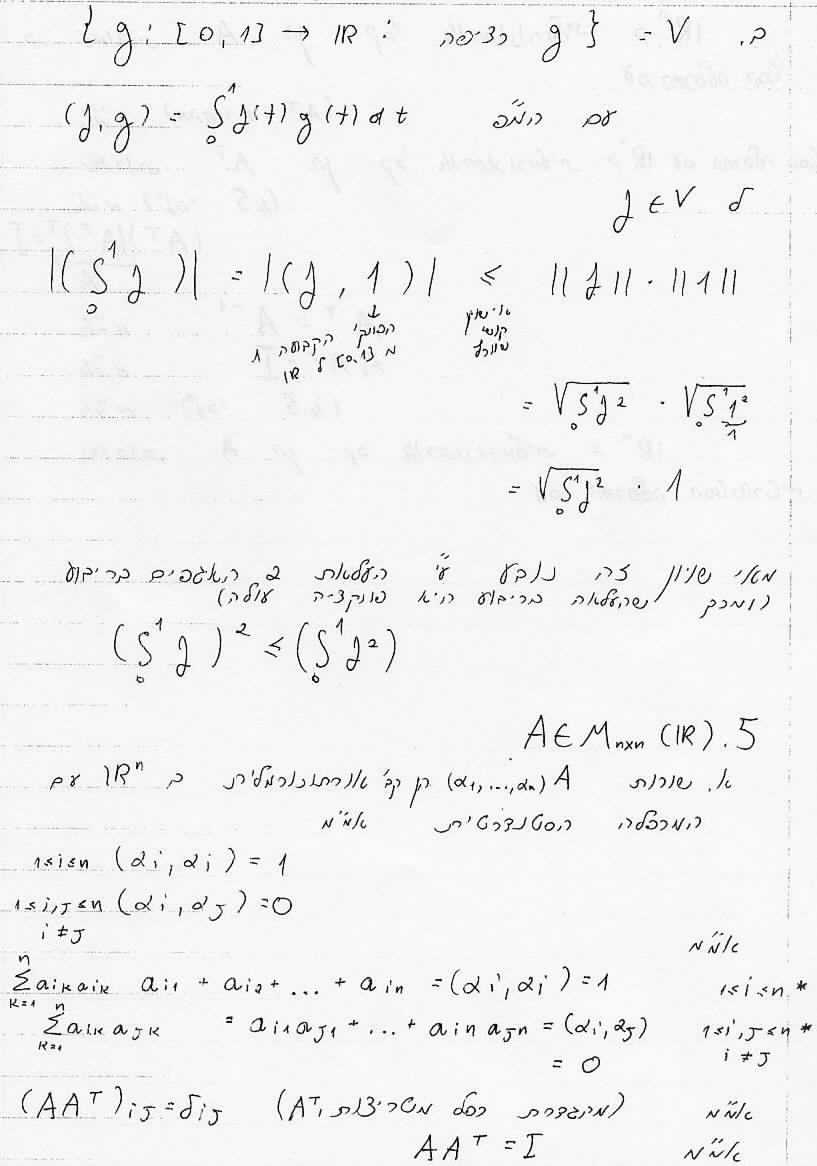 ב. V = {g : [0,1] → ℝ : רציפה g}
עם המ"פ (f,g) = ∫₀¹ f(t) g(t) dt
ל f ∈ V
|(∫₀¹ f)| = |(f, 1)| ≤ ||f|| · ||1||
↓
הפונק' הקבועה 1
מ [0,1] ל ℝ
אי-שוויון
קושי
שוורץ
= √(∫₀¹ f²) · √(∫₀¹ 1²)
1
= √(∫₀¹ f²) · 1
מאי שוויון זה נובע ע"י העלאת 2 האגפים בריבוע
(ומכך שהעלאה בריבוע היא פונקציה עולה)
(∫₀¹ f)² ≤ (∫₀¹ f²)
5. A ∈ Mₙₓₙ (ℝ)
א. שורות A (α₁,...,αₙ) הן קב' אורתונורמלית ב ℝⁿ עם
המכפלה הסטנדרטית אמ"מ
1≤i≤n (αi, αi) = 1
1≤i,j≤n (αi, αj) = 0
i ≠ j
אמ"מ
* 1≤i≤n Σₖ₌₁ⁿ aik aik ai1 + ai2 + ... + ain = (αi, αi) = 1
* 1≤i,j≤n Σₖ₌₁ⁿ aik ajk = ai1 aj1 + ... + ain ajn = (αi, αj)
i ≠ j = 0
אמ"מ (מהגדרת כפל מטריצות, Aᵀ) (AAᵀ)ij = δij
אמ"מ AAᵀ = I